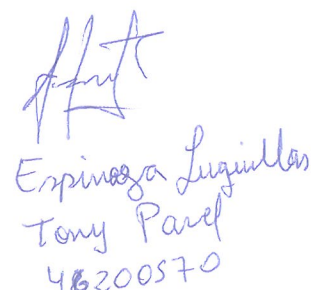 Espinoza Luguillas
Tony Pavel
46200570